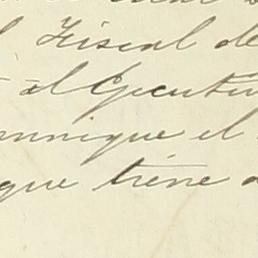 Fiscal de
al Ejecutiv
munique el
que tiene